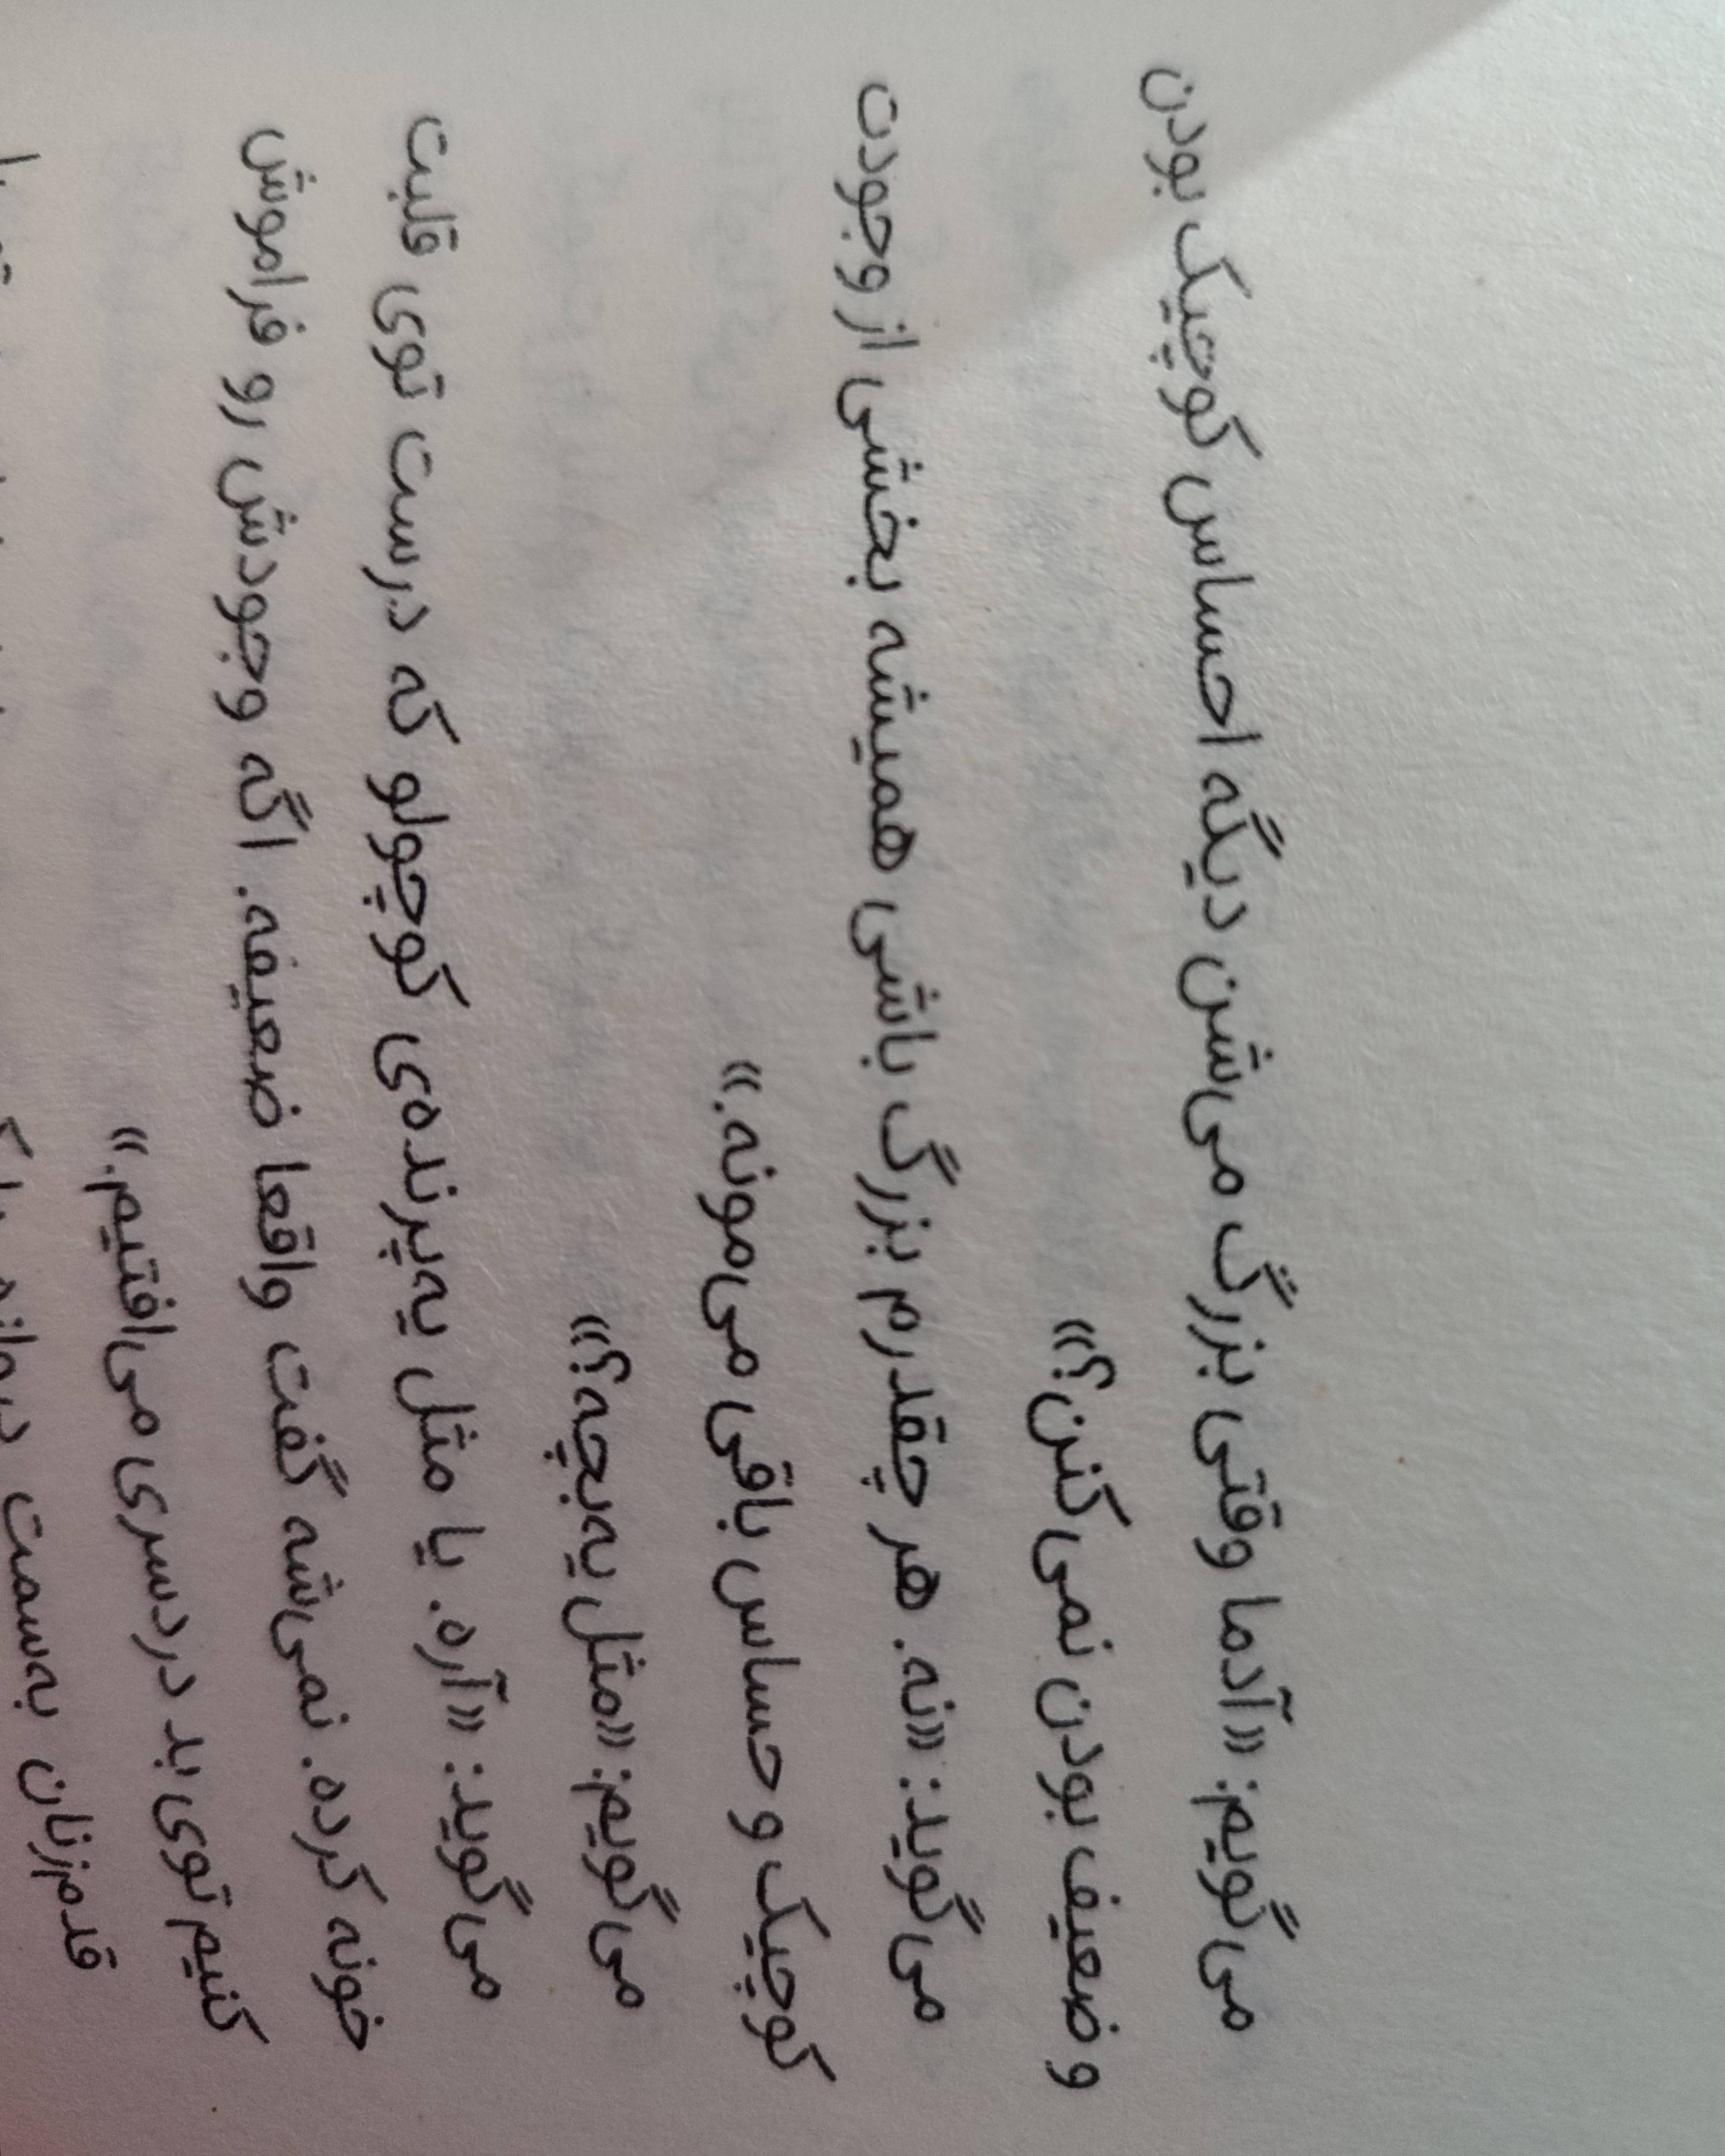 می‌گویم: «آدما وقتی بزرگ می‌شن دیگه احساس کوچیک بودن
و ضعیف بودن نمی‌کنن؟»
می‌گوید: «نه. هر چقدرم بزرگ باشی همیشه بخشی از وجودت
کوچیک و حساس باقی می‌مونه.»
می‌گویم: «مثل یه‌بچه؟»
می‌گوید: «آره. یا مثل یه‌پرنده‌ی کوچولو که درست توی قلبت
خونه کرده. نمی‌شه گفت واقعا ضعیفه. اگه وجودش رو فراموش
کنیم توی بد دردسری می‌افتیم.»
قدم‌زنان به‌سمت